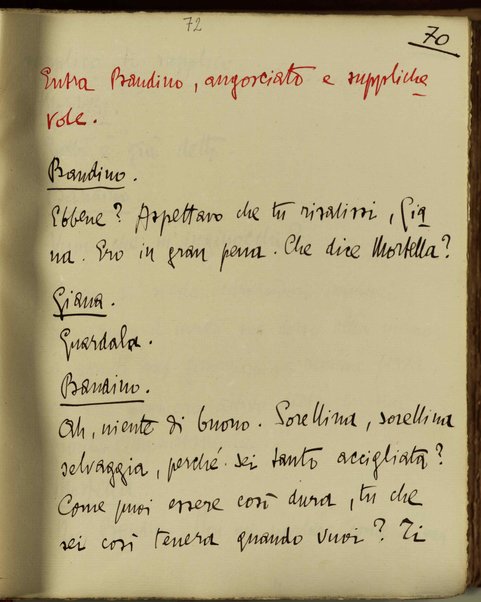 72
70
Entra Bandino, angosciato e suppliche
vole.
Bandino.
Ebbene? Aspettavo che tu risalissi, Gia
na. Ero in gran pena. Che dice Mortella?
Giana.
Guardala.
Bandino.
Ah, niente di buono. Sorellina, sorellina
selvaggia, perché sei tanto accigliata?
Come puoi essere così dura, tu che
sei così tenera quando vuoi? Ti